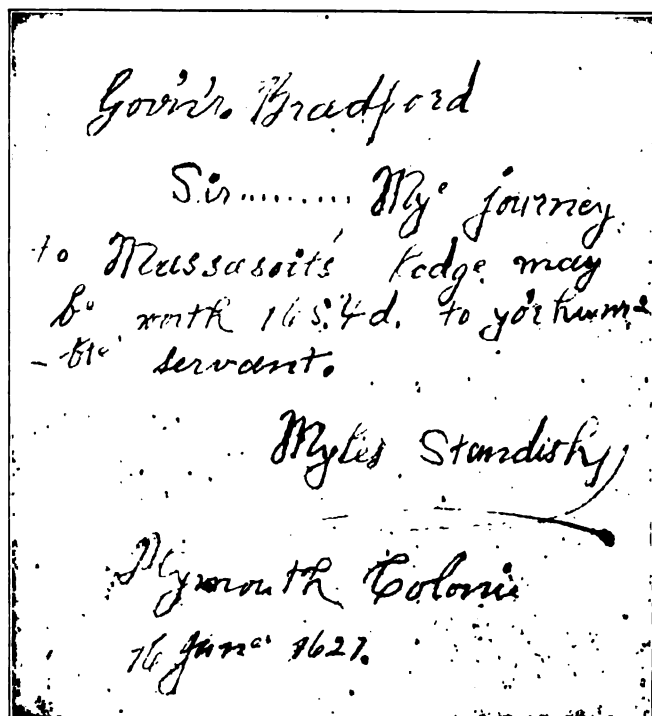 Gov'n'r. Bradford
Sir......... Mye journey
to Massasoit's Lodge may
be worth 16 S. 4 d. to yo'r hum=
-ble servant.
Myles Standish
Plymouth Colonie
16 June 1627.